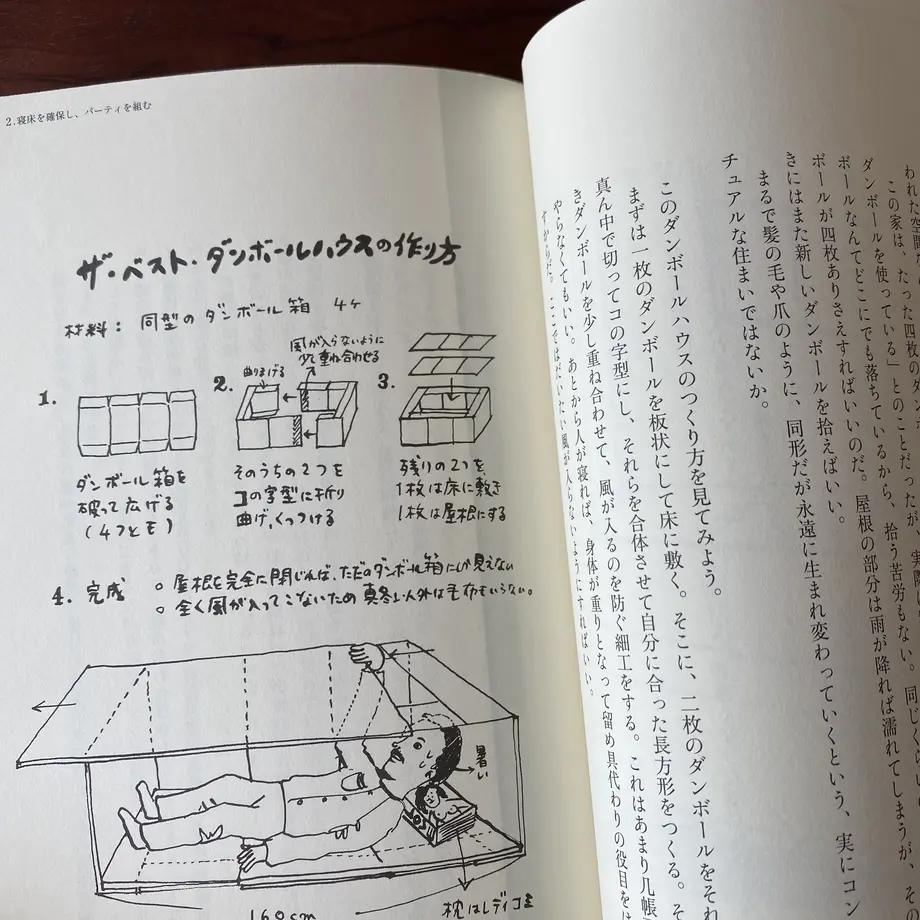 2.寝床を確保し、パーティを組む
ザ・ベスト・ダンボールハウスの作り方
材料: 同型のダンボール箱 4ケ
1.
ダンボール箱を
破って広げる
(4つとも)
2.
曲りまげる
風が入らないように
少し重ね合わせる
そのうちの2つを
コの字型に折り
曲げ、くっつける
3.
残りの2つを
1枚は床に敷き
1枚は屋根にする
4. 完成
○屋根を完全に閉じれば、ただのダンボール箱にしか見えない
○全く風が入ってこないため真冬以外は毛布もいらない。
暑い
160cm
枕はレディコミ
われた空間
この家は、たった四枚の
ダンボールを使っている」とのことだったが、実際
ボールなんてどこにでも落ちているから、拾う苦労もない。同じくら
ボールが四枚ありさえすればいいのだ。屋根の部分は雨が降れば濡れてしまうが、その
きにはまた新しいダンボールを拾えばいい。
まるで髪の毛や爪のように、同形だが永遠に生まれ変わっていくという、実にコン
チュアルな住まいではないか。
このダンボールハウスのつくり方を見てみよう。
まずは一枚のダンボールを板状にして床に敷く。そこに、二枚のダンボールをそれ
真ん中で切ってコの字型にし、それらを合体させて自分に合った長方形をつくる。そ
きダンボールを少し重ね合わせて、風が入るのを防ぐ細工をする。これはあまり几帳
やらなくてもいい。あとから人が寝れば、身体が重りとなって留め具代わりの役目をは
すからだ。ここではだいたい風が入らないようにすればいい。